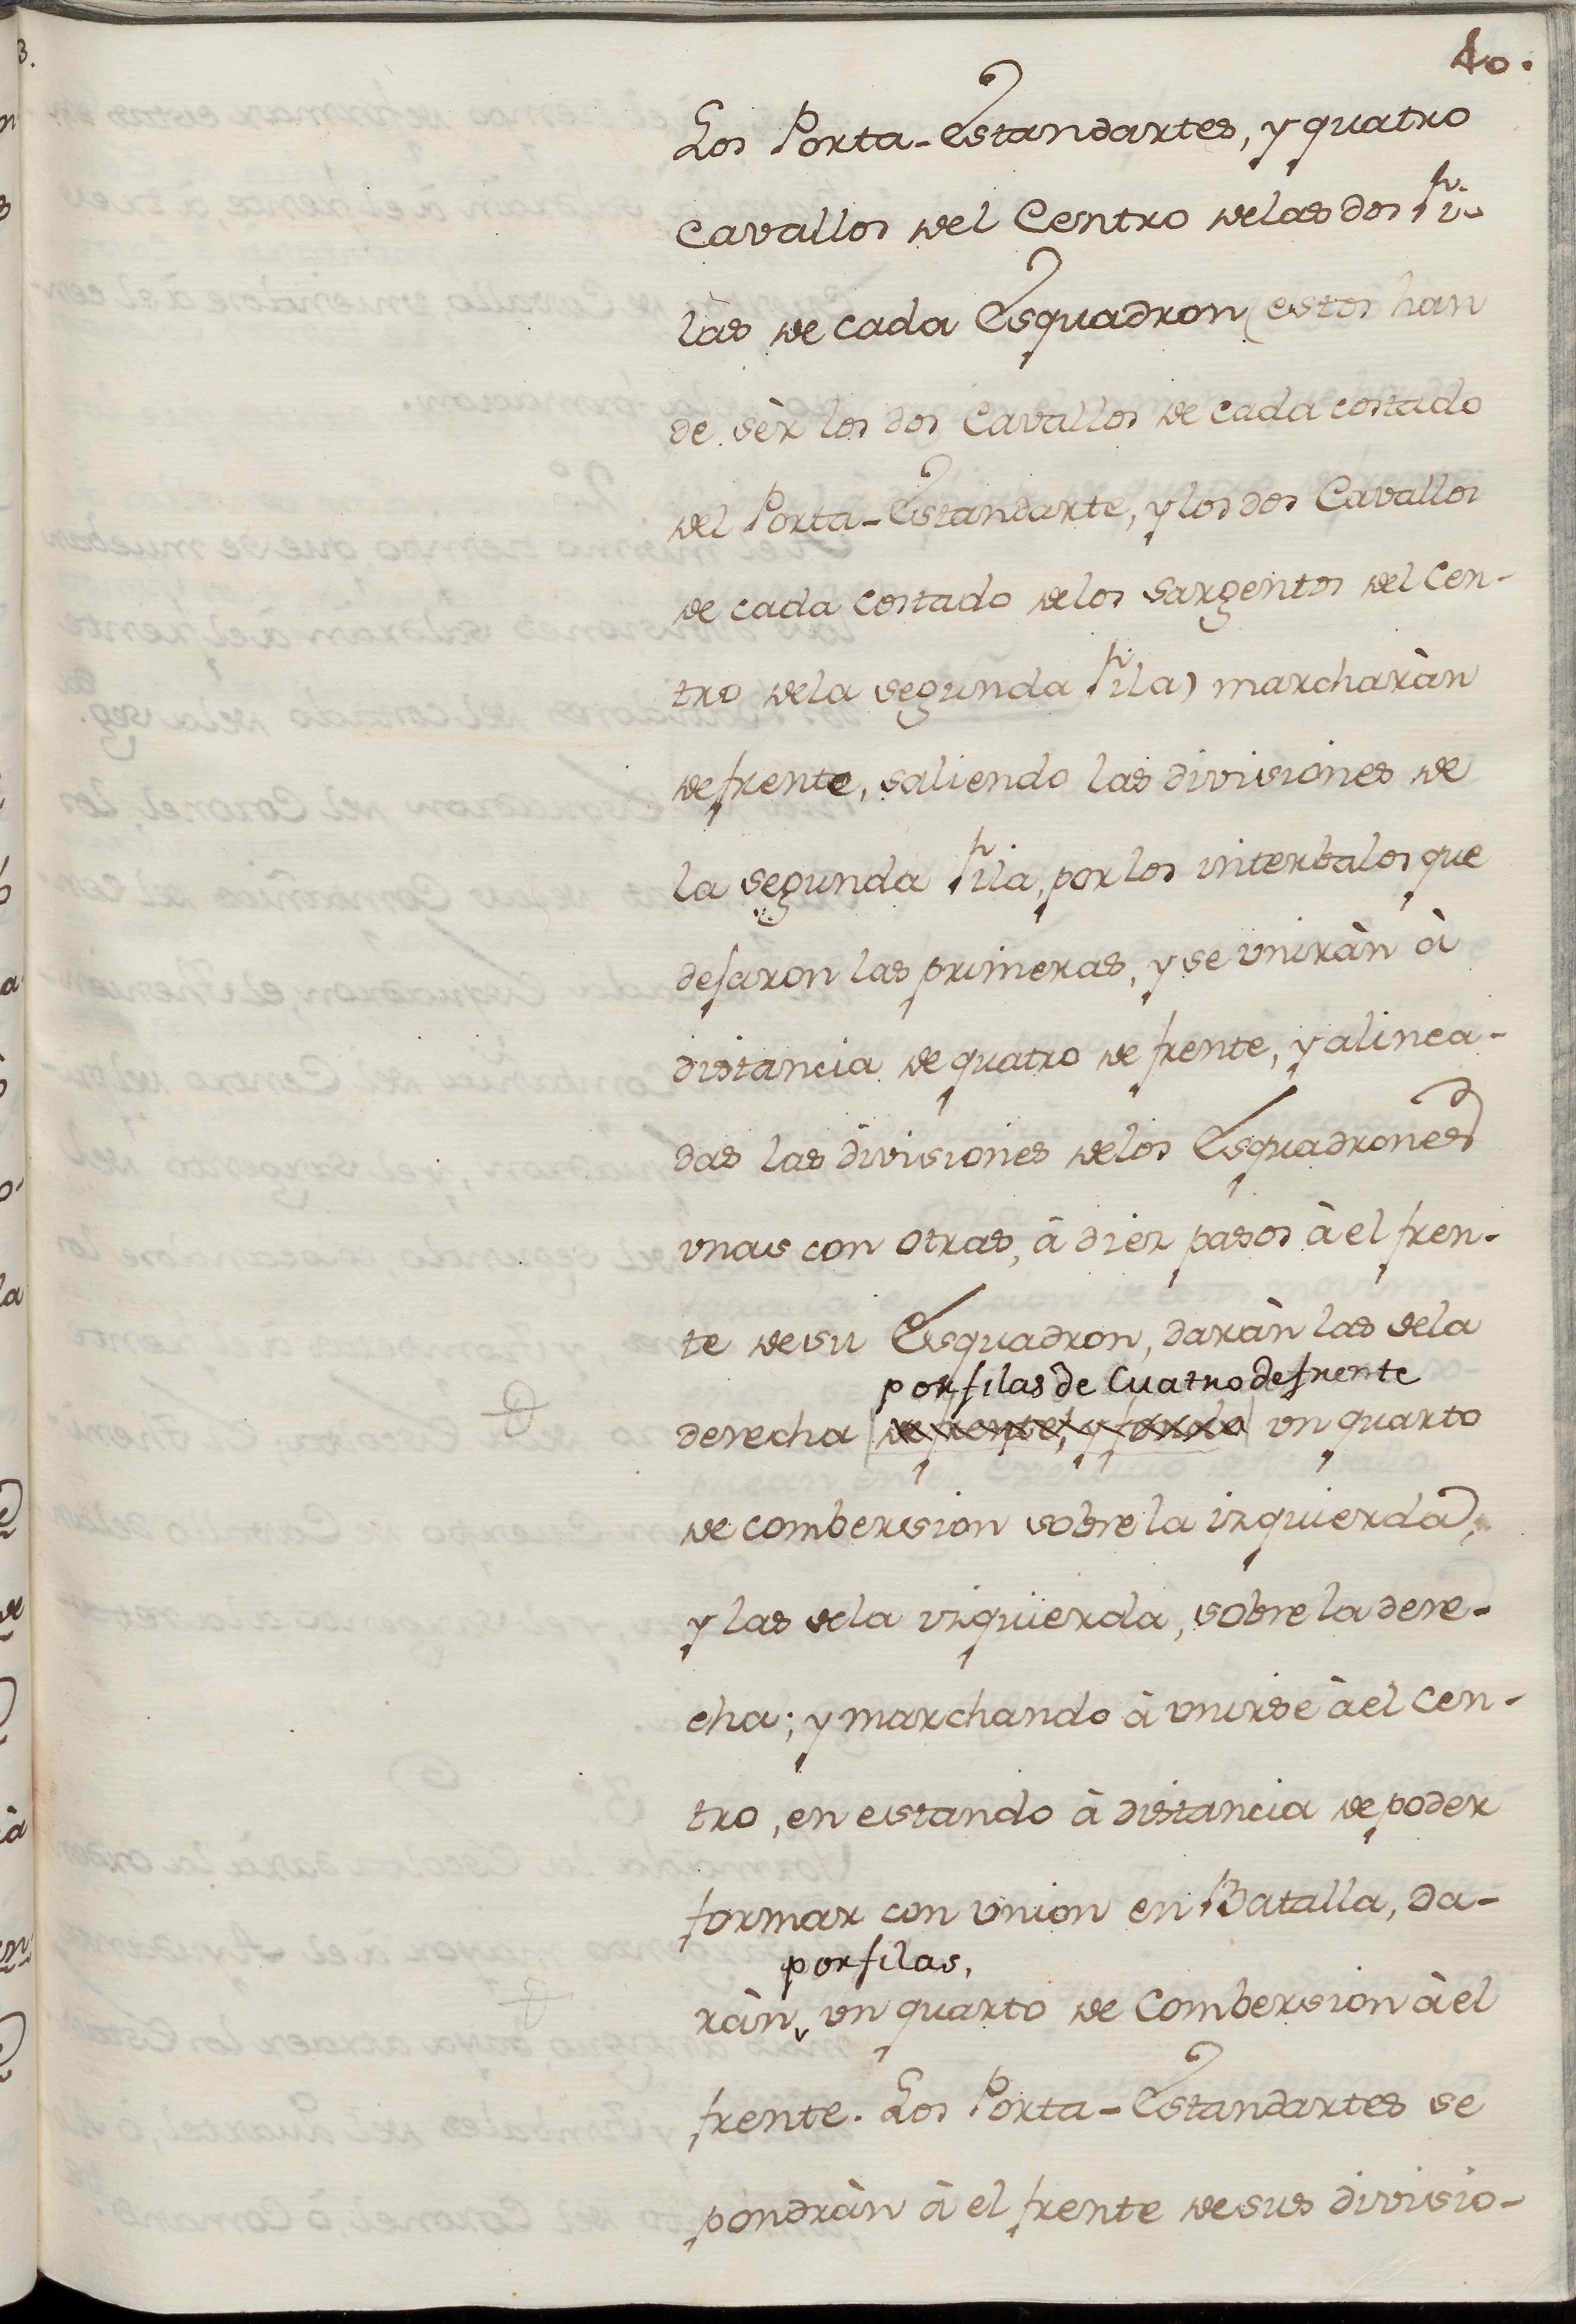 40.
Los Porta-Estandartes, y quatro
Cavallos del Centro delas dos Fi-
las de cada Esquadron (estos han
de sèr los dos Cavallos de cada costado
del Porta-Estandarte, y los dos Cavallos
de cada costado delos sargentos del Cen-
tro dela segunda Fila) marcharàn
de frente, saliendo las divisiones de
la segunda Fila, por los interbalos que
dejaron las primeras, y se uniràn à
distancia de quatro de frente, y alinea-
das las divisiones delos Esquadrones
unas con otras, à diez pasos à el fren-
te de su Esquadron, daràn las dela
por filas de Cuatro de frente
derecha de frente, y fondo un quarto
de combersion sobre la izquierda,
y las dela izquierda, sobre la dere-
cha; y marchando à unirse à el Cen-
tro, en estando à distancia de poder
formar con union en Batalla, da-
por filas,
ràn un quarto de Combersion à el
frente. Los Porta-Estandartes se
pondràn à el frente de sus divisio-